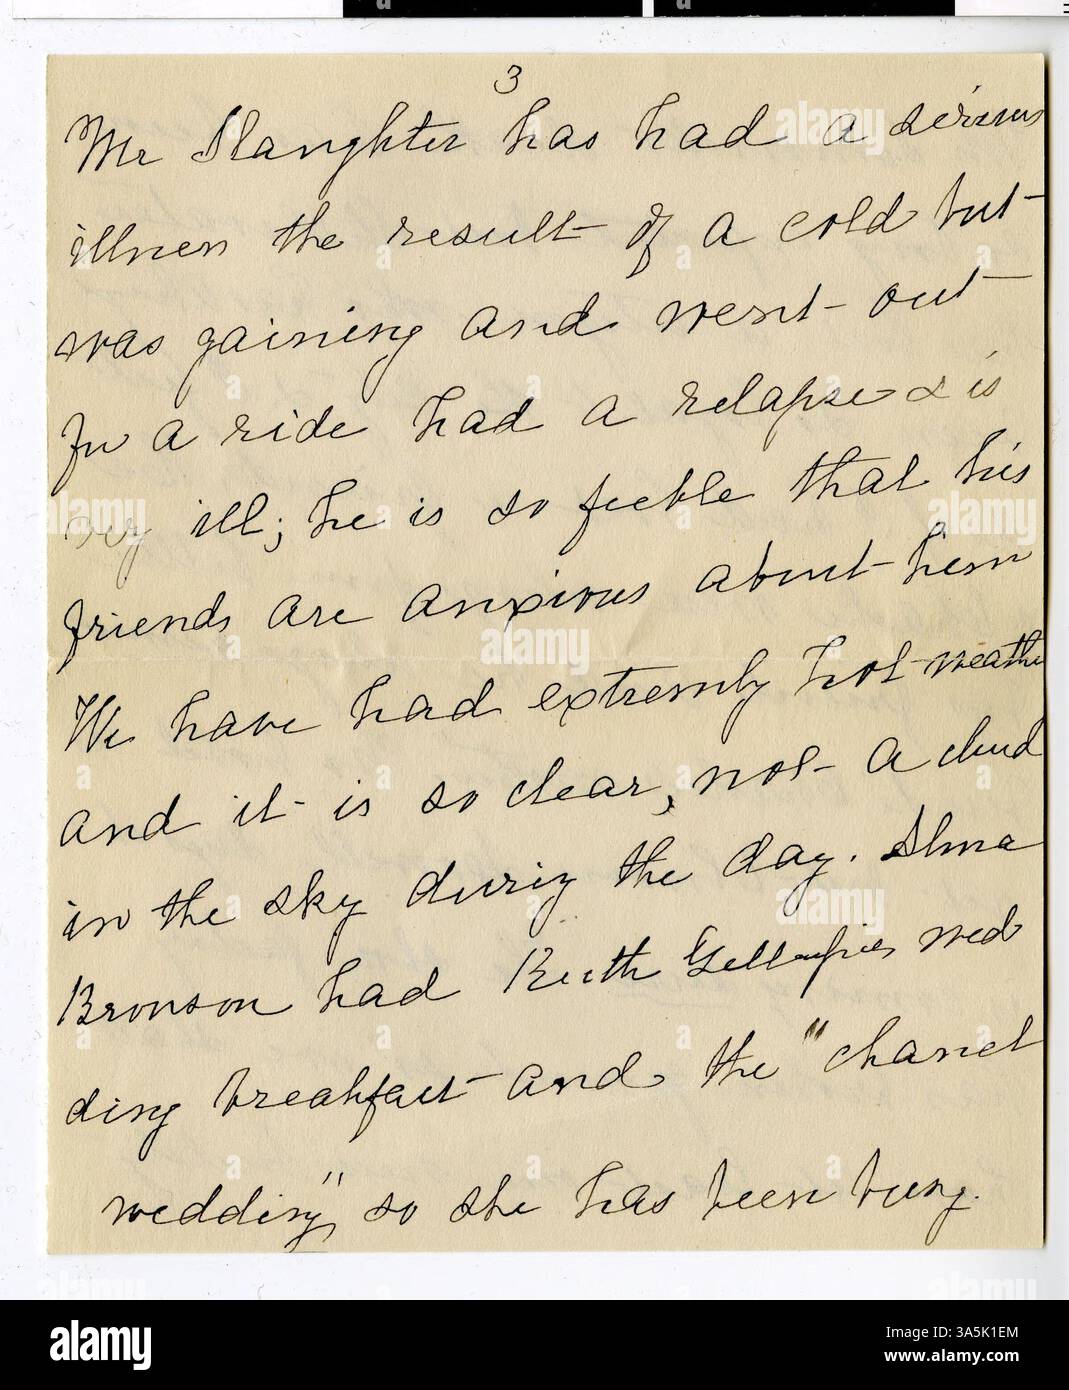 3
Mr Slaughter has had a serious
illness the result of a cold but
was gaining and went out
for a ride had a relapse & is
very ill; he is so feeble that his
friends are anxious about him
We have had extremly hot weather
and it is so clear, not a cloud
in the sky during the day. Alma
Bronson had Ruth wed
ding breakfast and the "chanel
wedding", so she has been busy.
alamy
Image ID: 3A5K1EM
www.alamy.com